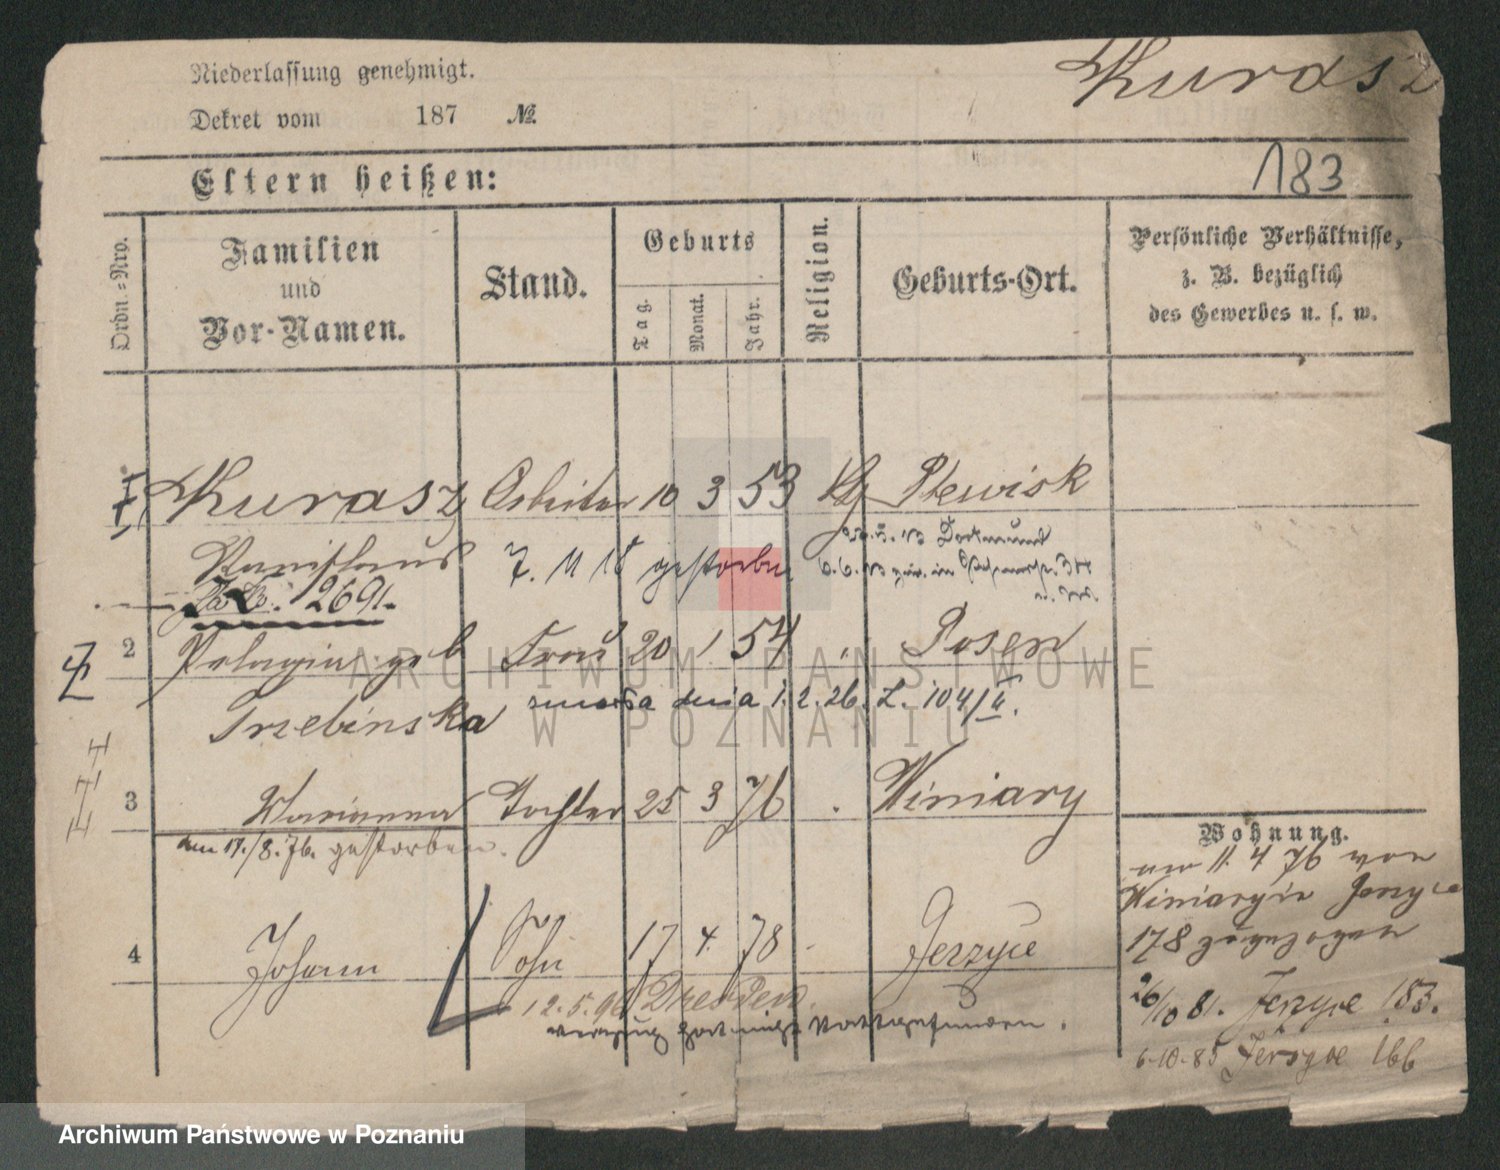 Kurasz
Niederlassung genehmigt.
Dekret vom 187 №
183
Eltern heißen:
Ordn.=Nro.
Familien
und
Vor-Namen.
Stand.
Geburts
Tag.
Monat.
Jahr.
Religion.
Geburts-Ort.
Persönliche Verhältnisse,
z. B. bezüglich
des Gewerbes u. s. w.
Kurasz Arbeiter 10 3 53 Plewisk
Stanislaus 7. 11 18 gestorben
Dortmund
2691.
2 Pelagia geb Frau 20 1 54 Posen
Trzebinska zmarła dnia 1.2.26. L. 104/II.
3 Marianna Tochter 25 3 76 Winiary
am 17./8. 76. gestorben.
Wohnung.
am 11. 4 76 von
Winiary in Jerzyce
178 zugezogen
4 Johann Sohn 17 4. 78 Jerzyce
12.5.96 Dresden.
verzug hat nicht stattgefunden.
26/10 81. Jerzyce 153.
6.10.85 Jerzyce 166
ARCHIWUM PAŃSTWOWE
W POZNANIU
Archiwum Państwowe w Poznaniu